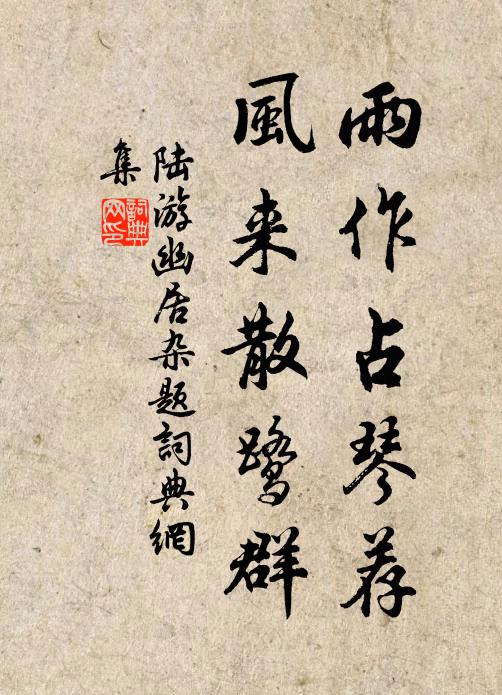 雨作占琴荐
風来散鹭群
陆游幽居杂题詞典網
集
詞典网印